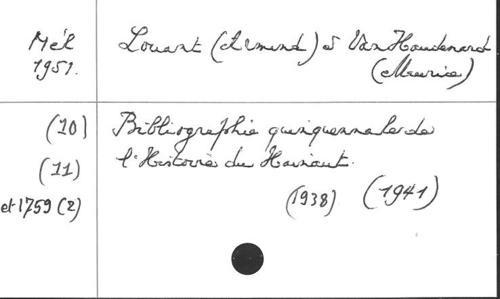 Mél Louant (Armand) et Van Haudenard
1951. (Maurice)
(10) Bibliographie quinquennale de
(11) l'Histoire du Hainaut.
et 1759 (2) (1938) (1941)